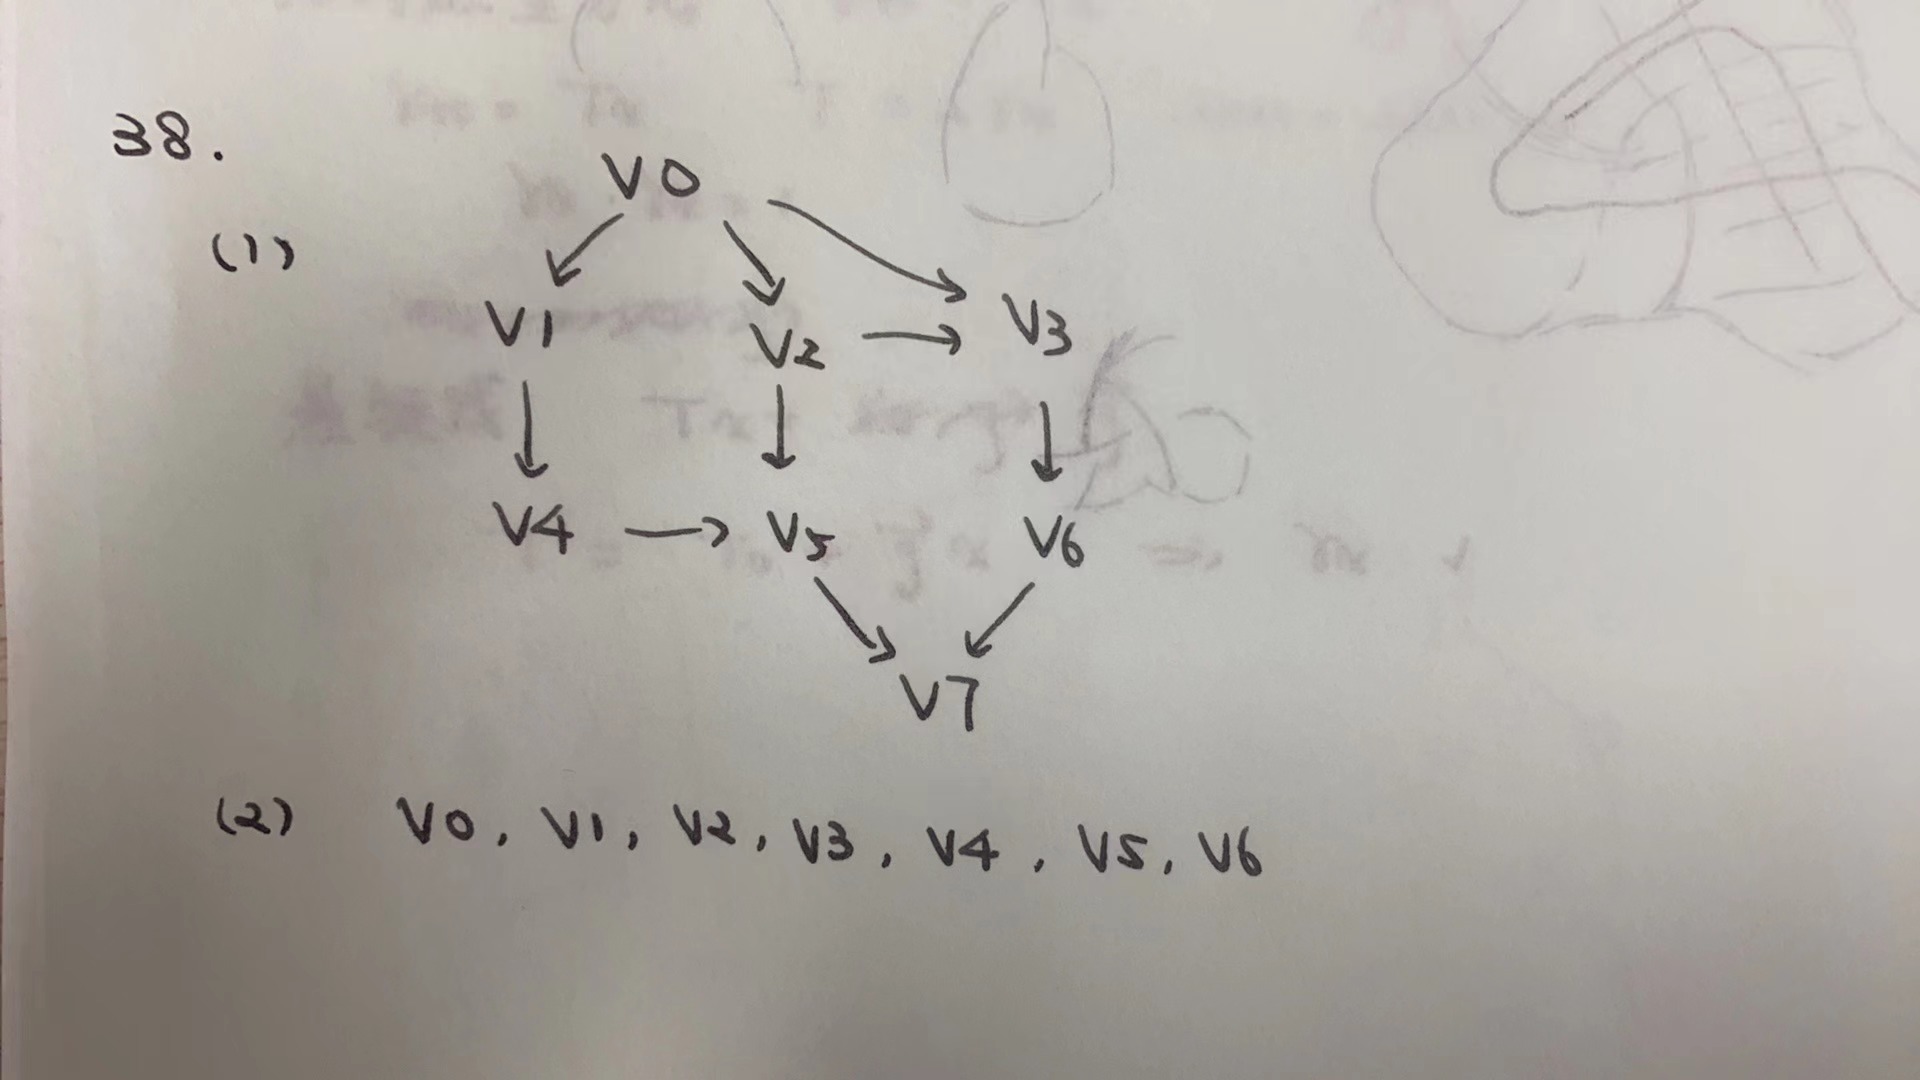 38.
V0
(1)
V1 V2 V3
V4 V5 V6
V7
(2) V0, V1, V2, V3, V4, V5, V6